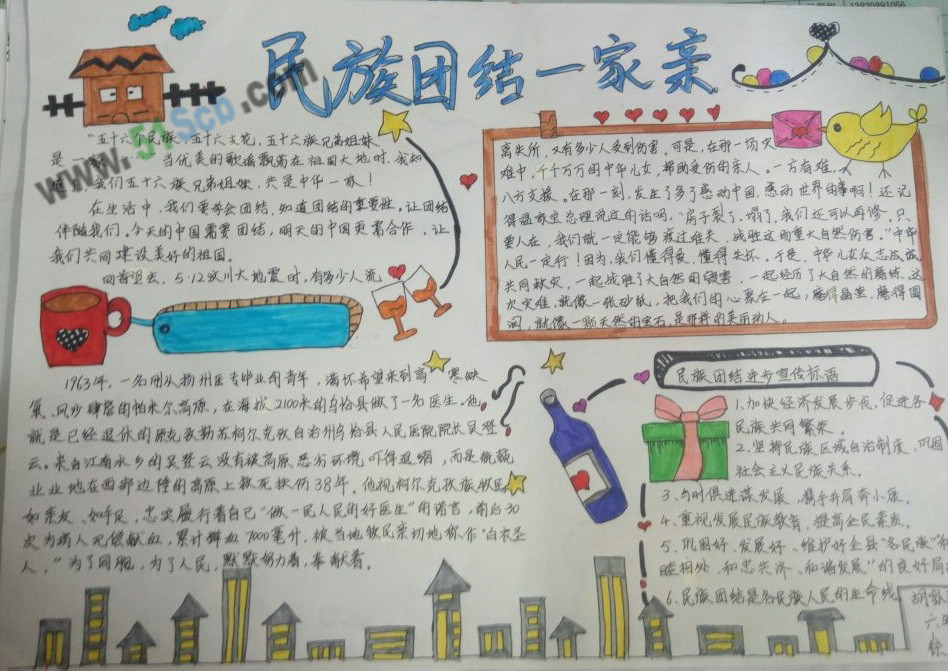 13820891056
民族团结一家亲
www.51Scb.com
"五十六个民族,五十六支花,五十六族兄弟姐妹
是一 当优美的歌谣飘荡在祖国大地时,我知
我们五十六族兄弟姐妹,共是中华一家!
在生活中,我们要学会团结,知道团结的重要性。让团结
伴随我们。今天的中国需要团结,明天的中国更需合作,让
我们共同建设美好的祖国。
回首望去,5·12汶川大地震时,有多少人流
离失所,又有多少人受到伤害。可是,在那一场灾
难中,千千万万的中华儿女,帮助受伤的亲人。一方有难,
八方支援。在那一刻,发生了多少感动中国,感动世界的事啊!还记
得温家宝总理说过的话吗,"房子裂了,塌了,我们还可以再修。只
要人在,我们就一定能够渡过难关,战胜这场重大自然伤害。"中华
人民一定行!因为,我们懂得爱,懂得关怀。于是,中华儿女众志成城
共同救灾,一起战胜了大自然的侵害,一起经历了大自然的磨练,这
次灾难,就像一张砂纸,把我们的心聚在一起,磨得晶莹,磨得圆
润,就像一颗天然的宝石,是那样的美丽动人。
1963年,一名刚从扬州医专毕业的青年,满怀希望来到高 寒缺
氧、风沙肆虐的帕米尔高原,在海拔2100米的乌恰县做了一名医生。他
就是已经退休的原克孜勒苏柯尔克孜自治州乌恰县人民医院院长吴登
云。来自江南水乡的吴登云没有被高原恶劣环境吓得退缩,而是兢兢
业业地在西部边陲的高原上救死扶伤38年。他视柯尔克孜族牧民
如亲友、如手足,忠实履行着自己"做一民人民的好医生"的诺言,前后30
次为病人无偿献血,累计献血7000毫升,被当地牧民亲切地称作"白衣圣
人"。为了同胞,为了人民,默默努力着,奉献着。
民族团结进步宣传标语
1、加快经济发展步伐,促进各
民族共同繁荣。
2、坚持民族区域自治制度,巩固
社会主义民族关系。
3、与时俱进谋发展,携手并肩奔小康。
4、重视发展民族教育,提高全民素质。
5、巩固好、发展好、维护好全县"各民族"和
睦相处、和忠共济、和谐发展"的良好局
6、民族团结是各民族人民的生命线
六